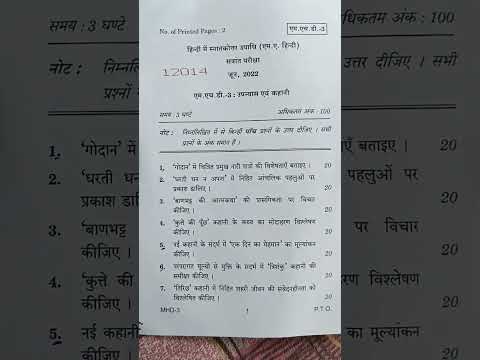 No. of Printed Pages : 2
एम.एच.डी.-3
हिन्दी में स्नातकोत्तर उपाधि (एम.ए. हिन्दी)
सत्रांत परीक्षा
12014
जून, 2022
एम.एच.डी.-3 : उपन्यास एवं कहानी
समय : 3 घण्टे
अधिकतम अंक : 100
नोट : निम्नलिखित में से किन्हीं पाँच प्रश्नों के उत्तर दीजिए । सभी
प्रश्नों के अंक समान हैं ।
1. 'गोदान' में चित्रित प्रमुख नारी पात्रों की विशेषताएँ बताइए । 20
2. 'धरती धन न अपना' में निहित आंचलिक पहलुओं पर
प्रकाश डालिए । 20
3. 'बाणभट्ट की आत्मकथा' की प्रासंगिकता पर विचार
कीजिए । 20
4. 'कुत्ते की पूँछ' कहानी के कथ्य का सोदाहरण विश्लेषण
कीजिए । 20
5. नई कहानी के संदर्भ में 'एक दिन का मेहमान' का मूल्यांकन
कीजिए । 20
6. परंपरागत मूल्यों से मुक्ति के संदर्भ में 'त्रिशंकु' कहानी की
समीक्षा कीजिए । 20
7. 'तिरिछ' कहानी में निहित शहरी जीवन की संवेदनहीनता को
विश्लेषित कीजिए । 20
MHD-3
1
P.T.O.
समय : 3 घण्टे
नोट : निम्नलि
प्रश्नों
1. 'गोदान'
2. 'धरती
प्रकाश डा
3. 'बाणभट्ट
कीजिए ।
4. 'कुत्ते की
कीजिए ।
5. नई कहानी
धिकतम अंक : 100
उत्तर दीजिए । सभी
बताइए । 20
पहलुओं पर
20
विचार
20
विश्लेषण
20
का मूल्यांकन
20